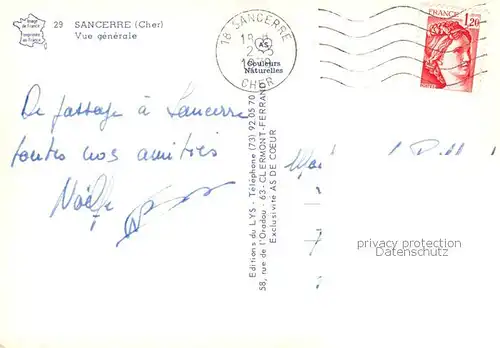 29 SANCERRE (Cher)
Vue générale
Image de France
18 SANCERRE
CHER
AS
Couleurs
Naturelles
FRANCE
1,20
De passage à Sancerre
toutes nos amitiés
Noëlle
Editions du LYS - Téléphone (73) 92.05.70
58, rue de l'Oradou - 63-CLERMONT-FERRAND
Exclusivité AS DE COEUR
privacy protection
Datenschutz